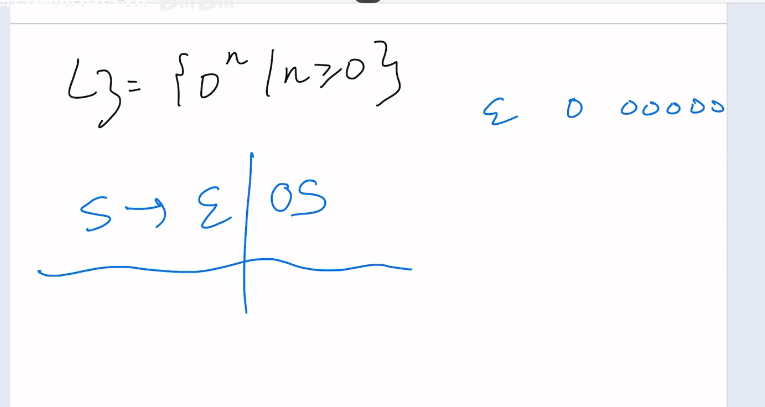 L3 = {0ⁿ | n ≥ 0}
ε 0 00000
S → ε | 0S